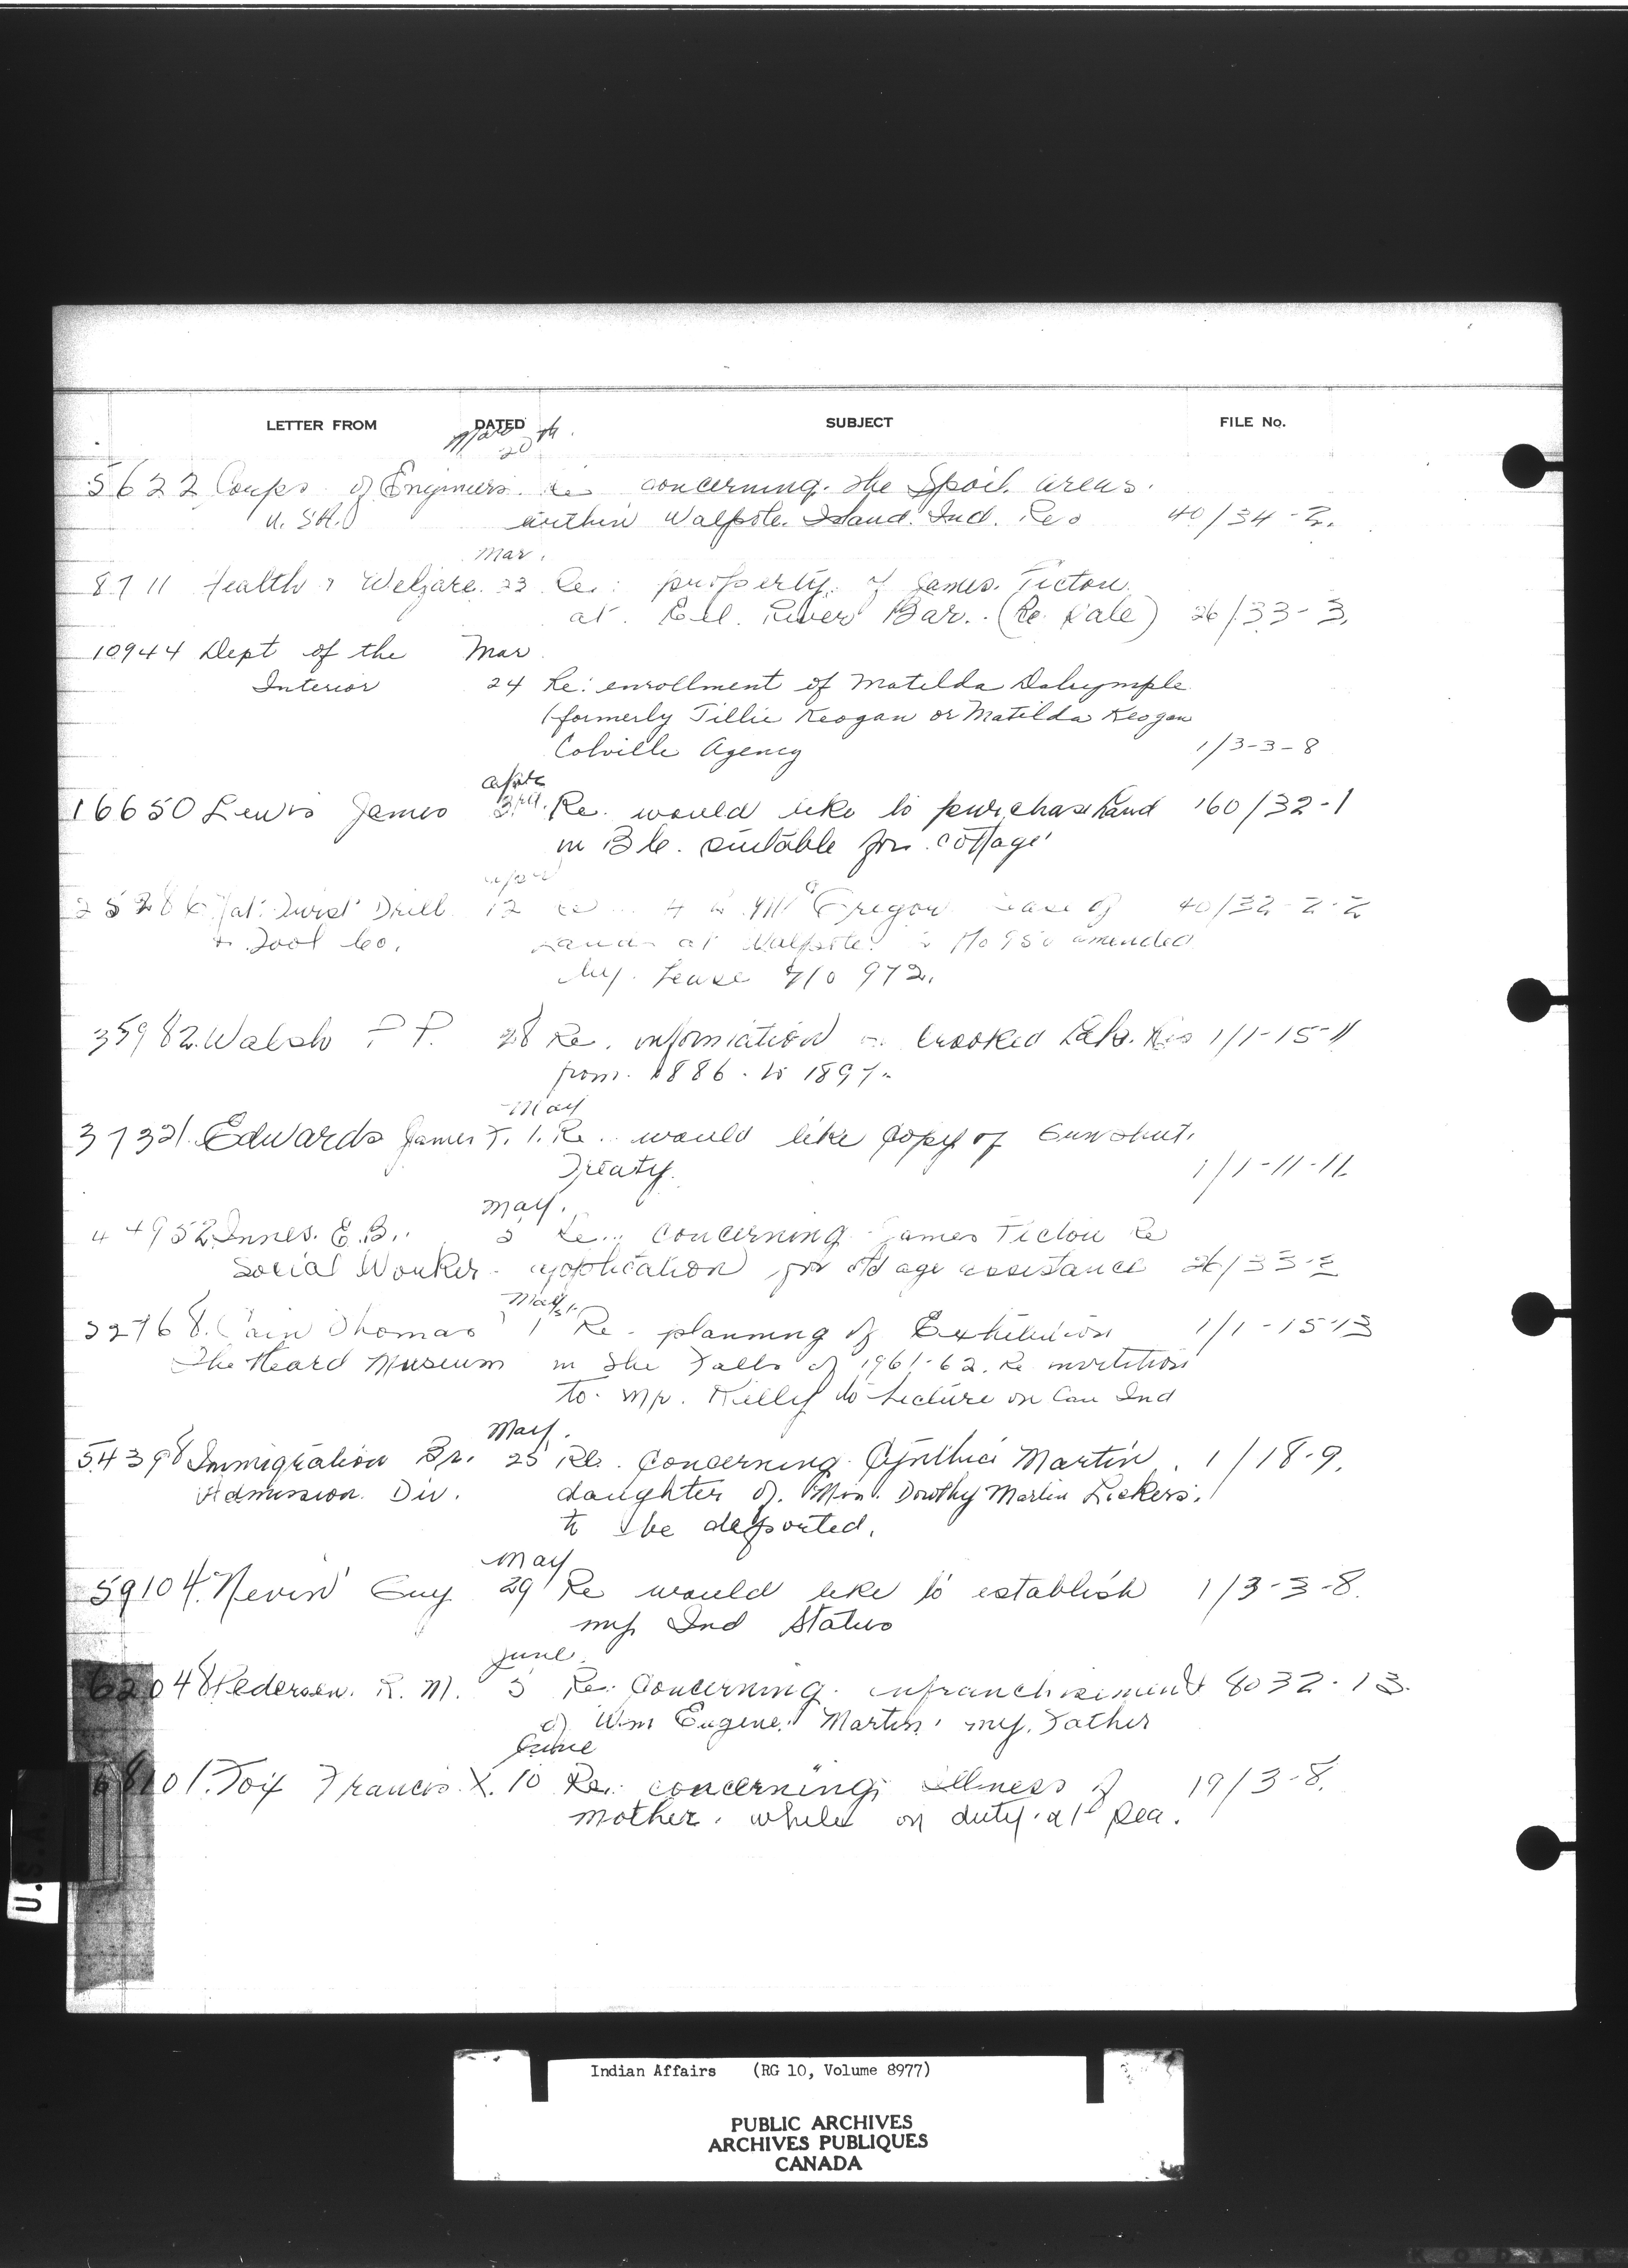 LETTER FROM DATED SUBJECT FILE No.
Mar 20th.
5622 Corps of Engineers. Re concerning. the Spoil. areas.
U.S.A. within Walpole. Island. Ind. Res 40/34-2.
Mar.
8711 Health & Welfare. 23 Re: property. of James. Ticton.
at. Eel. River Bar. (Re. Sale) 26/33-3.
10944 Dept of the Mar
Interior 24 Re: enrollment of Matilda Dalrymple
(formerly Tillie Keogan or Matilda Keogan
Colville Agency 1/3-3-8
16650 Lewis James 3rd. Re. would like to purchase land 160/32-1
in B.C. suitable for cottage
April
25286 Nat. Twist Drill 12 Re Gregor lease of 40/32-2-2
& Tool Co. Lands at Walpole No 950 amended
by. Lease No 972.
35982. Walsh P. P. 28 Re. information Crooked Lake. Res 1/1-15-11
from. 1886. to 1897.
May
37321. Edwards James F. 1. Re. would like copy of Gunshut.
Treaty. 1/1-11-11
May.
44952 Innes. E.B. 3 Re. concerning James Ticton Re
Social Worker. application for old age assistance 26/33-3
May
52768. Cain Thomas 1 Re. planning of Exhibition 1/1-15-13
The Heard Museum in the Falls of 1961-62. Re invitition
to. Mr. Kelly to lecture on Can Ind
May.
54398 Immigration Br. 25 Re. Concerning. Cynthia Martin. 1/18-9.
Admission. Div. daughter of. Mrs. Dorothy Martin Lickers.
to be deported.
May
59104. Nevin Guy 29 Re would like to establish 1/3-3-8.
my Ind Status
June.
62048 Pedersen. R. M. 5 Re: Concerning. enfranchisement 8032-13.
of Wm Eugene. Martin. my. Father
June
68101. Foix Francis. X. 10 Re: concerning illness of 19/3-8.
mother. while on duty. at Sea.
U.S.A.
Indian Affairs (RG 10, Volume 8977)
PUBLIC ARCHIVES
ARCHIVES PUBLIQUES
CANADA